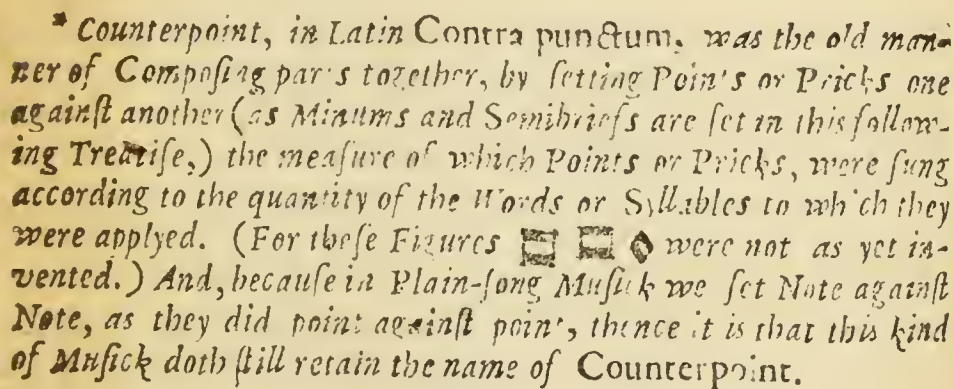 * Counterpoint, in Latin Contra punctum, was the old man-
ner of Composing parts together, by ſetting Points or Pricks one
againſt another (as Minums and Semibriefs are ſet in this follow-
ing Treatiſe,) the meaſure of which Points or Pricks, were ſung
according to the quantity of the Words or Syllables to which they
were applyed. (For theſe Figures were not as yet in-
vented.) And, becauſe in Plain-ſong Muſick we ſet Note againſt
Note, as they did point againſt point, thence it is that this kind
of Muſick doth ſtill retain the name of Counterpoint.